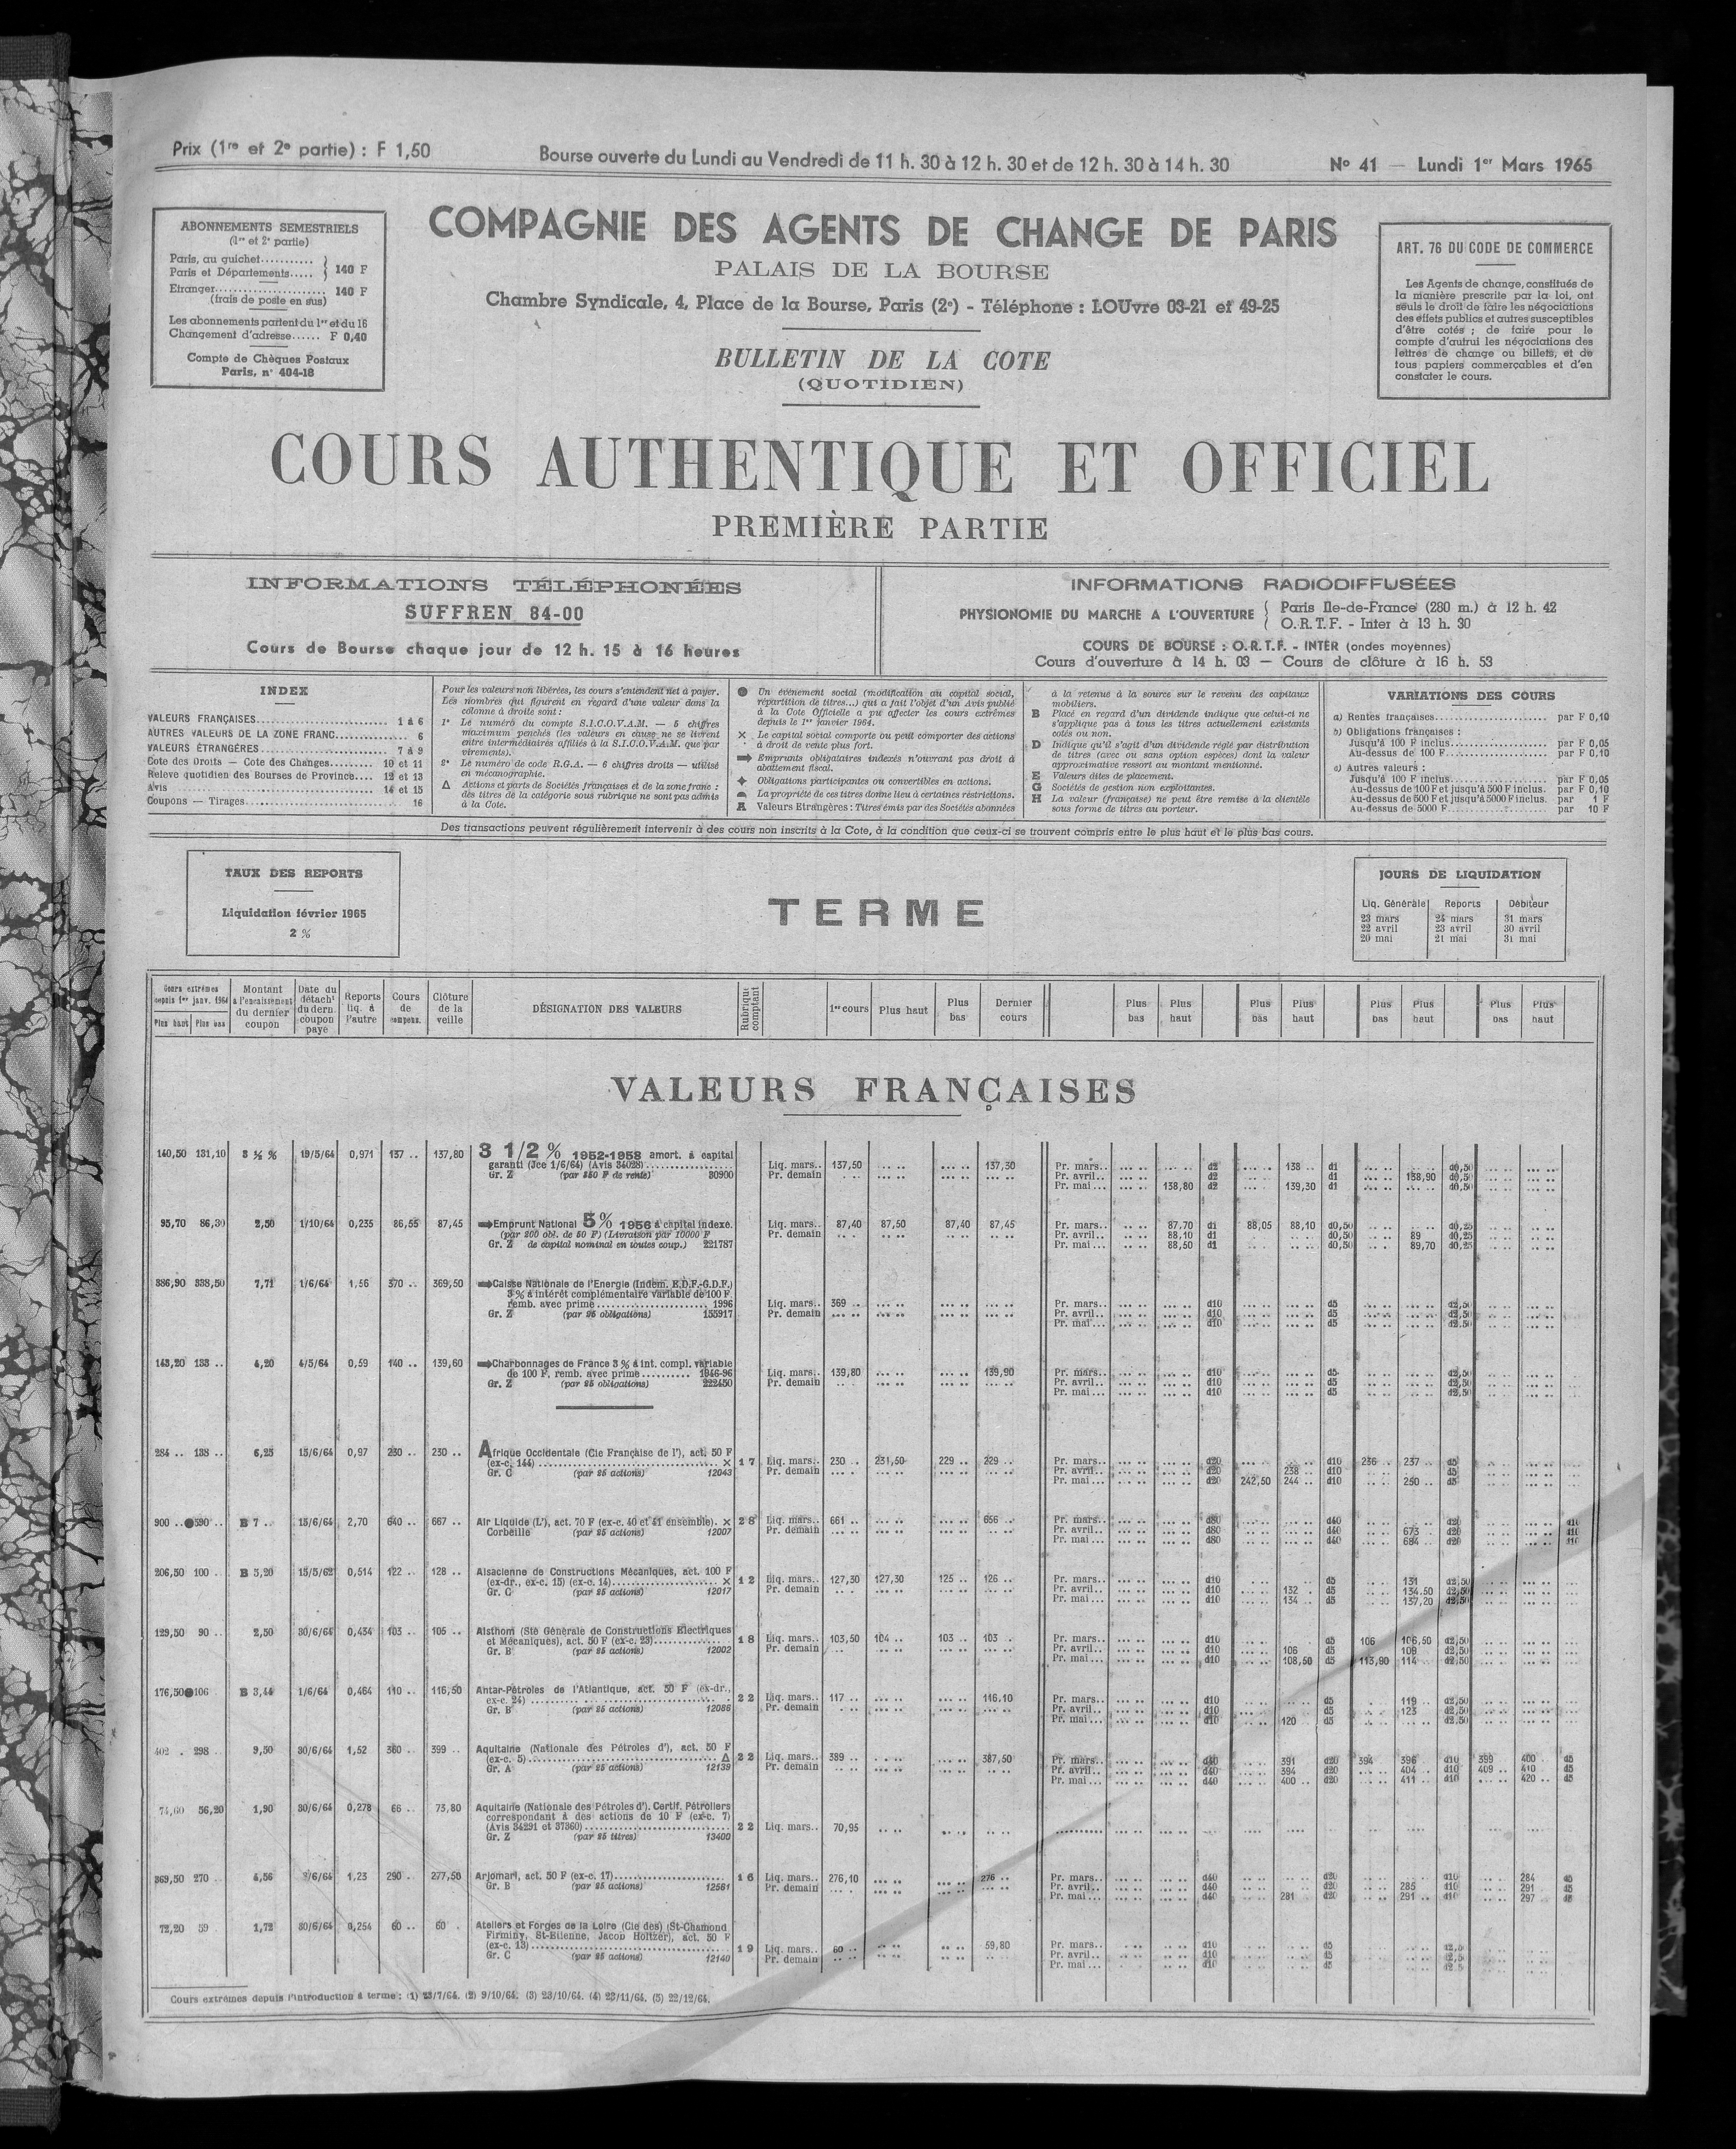 Prix (1re et 2e partie) : F 1,50
Bourse ouverte du Lundi au Vendredi de 11 h. 30 à 12 h. 30 et de 12 h. 30 à 14 h. 30
No 41 — Lundi 1er Mars 1965
ABONNEMENTS SEMESTRIELS
(1re et 2e partie)
Paris, au guichet...........
Paris et Départements..... } 140 F
Etranger...................... 140 F
(frais de poste en sus)
Les abonnements partent du 1er et du 16
Changement d'adresse...... F 0,40
Compte de Chèques Postaux
Paris, n° 404-18
COMPAGNIE DES AGENTS DE CHANGE DE PARIS
PALAIS DE LA BOURSE
Chambre Syndicale, 4, Place de la Bourse, Paris (2e) - Téléphone : LOUvre 03-21 et 49-25
BULLETIN DE LA COTE
(QUOTIDIEN)
ART. 76 DU CODE DE COMMERCE
Les Agents de change, constitués de
la manière prescrite par la loi, ont
seuls le droit de faire les négociations
des effets publics et autres susceptibles
d'être cotés ; de faire pour le
compte d'autrui les négociations des
lettres de change ou billets, et de
tous papiers commerçables et d'en
constater le cours.
COURS AUTHENTIQUE ET OFFICIEL
PREMIÈRE PARTIE
INFORMATIONS TÉLÉPHONÉES
SUFFREN 84-00
Cours de Bourse chaque jour de 12 h. 15 à 16 heures
INFORMATIONS RADIODIFFUSÉES
PHYSIONOMIE DU MARCHE A L'OUVERTURE { Paris Ile-de-France (280 m.) à 12 h. 42
O.R.T.F. - Inter à 13 h. 30
COURS DE BOURSE : O.R.T.F. - INTER (ondes moyennes)
Cours d'ouverture à 14 h. 03 — Cours de clôture à 16 h. 53
INDEX
VALEURS FRANÇAISES.......................... 1 à 6
AUTRES VALEURS DE LA ZONE FRANC............ 6
VALEURS ÉTRANGÈRES......................... 7 à 9
Cote des Droits — Cote des Changes........ 10 et 11
Relevé quotidien des Bourses de Province.... 12 et 13
Avis........................................ 14 et 15
Coupons — Tirages.......................... 16
Pour les valeurs non libérées, les cours s'entendent net à payer.
Les nombres qui figurent en regard d'une valeur dans la
colonne à droite sont :
1° Le numéro du compte S.I.C.O.V.A.M. — 5 chiffres
maximum penchés (les valeurs en cause ne se livrent
entre intermédiaires affiliés à la S.I.C.O.V.A.M. que par
virements).
2° Le numéro de code R.G.A. — 6 chiffres droits — utilisé
en mécanographie.
Δ Actions et parts de Sociétés françaises et de la zone franc :
des titres de la catégorie sous rubrique ne sont pas admis
à la Cote.
● Un événement social (modification au capital social,
répartition de titres...) qui a fait l'objet d'un Avis publié
à la Cote Officielle a pu affecter les cours extrêmes
depuis le 1er janvier 1964.
× Le capital social comporte ou peut comporter des actions
à droit de vote plus fort.
➡ Emprunts obligataires indexés n'ouvrant pas droit à
abattement fiscal.
✦ Obligations participantes ou convertibles en actions.
La propriété de ces titres donne lieu à certaines restrictions.
A Valeurs Etrangères : Titres émis par des Sociétés abonnées
à la retenue à la source sur le revenu des capitaux
mobiliers.
B Placé en regard d'un dividende indique que celui-ci ne
s'applique pas à tous les titres actuellement existants
cotés ou non.
D Indique qu'il s'agit d'un dividende réglé par distribution
de titres (avec ou sans option espèces) dont la valeur
approximative ressort au montant mentionné.
E Valeurs dites de placement.
G Sociétés de gestion non exploitantes.
H La valeur (française) ne peut être remise à la clientèle
sous forme de titres au porteur.
VARIATIONS DES COURS
a) Rentes françaises...................... par F 0,10
b) Obligations françaises :
Jusqu'à 100 F inclus.................. par F 0,05
Au-dessus de 100 F.................... par F 0,10
c) Autres valeurs :
Jusqu'à 100 F inclus.................. par F 0,05
Au-dessus de 100 F et jusqu'à 500 F inclus. par F 0,10
Au-dessus de 500 F et jusqu'à 5000 F inclus. par 1 F
Au-dessus de 5000 F................... par 10 F
Des transactions peuvent régulièrement intervenir à des cours non inscrits à la Cote, à la condition que ceux-ci se trouvent compris entre le plus haut et le plus bas cours.
TAUX DES REPORTS
Liquidation février 1965
2 %
TERME
JOURS DE LIQUIDATION
Liq. Générale Reports Débiteur
23 mars 24 mars 31 mars
22 avril 23 avril 30 avril
20 mai 21 mai 31 mai
Cours extrêmes depuis 1er janv. 1964 Plus haut Plus bas
Montant à l'encaissement du dernier coupon
Date du détacht du dern. coupon payé
Reports liq. à l'autre
Cours de compens.
Clôture de la veille
DÉSIGNATION DES VALEURS
Rubrique comptant
1er cours Plus haut Plus bas Dernier cours
Plus bas Plus haut Plus bas Plus haut Plus bas Plus haut Plus bas Plus haut
VALEURS FRANÇAISES
140,50 131,10 3 ½ % 19/5/64 0,971 137 .. 137,80 3 1/2 % 1952-1958 amort. à capital
garanti (Jce 1/6/64) (Avis 34028) Liq. mars.. 137,50 137,30 Pr. mars.. d2 138 .. d1 d0,50
Gr. Z (par 350 F de rente) 80900 Pr. demain Pr. avril.. d2 d1 138,90 d0,50
Pr. mai... 138,80 d2 139,30 d1 d0,50
95,70 86,30 2,50 1/10/64 0,235 86,55 87,45 ➡Emprunt National 5% 1956 à capital indexé. Liq. mars.. 87,40 87,50 87,40 87,45 Pr. mars.. 87,70 d1 88,05 88,10 d0,50 d0,25
(par 200 obl. de 50 F) (Livraison par 10000 F Pr. demain Pr. avril.. 88,10 d1 d0,50 89 d0,25
Gr. Z de capital nominal en toutes coup.) 221787 Pr. mai... 88,50 d1 d0,50 89,70 d0,25
386,90 338,50 7,71 1/6/64 1,56 370 .. 369,50 ➡Caisse Nationale de l'Energie (Indem. E.D.F.-G.D.F.)
3 % à intérêt complémentaire variable de 100 F.
remb. avec prime 1996 Liq. mars.. 369 .. Pr. mars.. d10 d5 d2,50
Gr. Z (par 25 obligations) 155917 Pr. demain Pr. avril.. d10 d5 d2,50
Pr. mai... d10 d5 d2,50
143,20 133 .. 4,20 4/5/64 0,59 140 .. 139,60 ➡Charbonnages de France 3 % à int. compl. variable
de 100 F, remb. avec prime 1946-96 Liq. mars.. 139,80 139,90 Pr. mars.. d10 d5 d2,50
Gr. Z (par 25 obligations) 222450 Pr. demain Pr. avril.. d10 d5 d2,50
Pr. mai... d10 d5 d2,50
284 .. 138 .. 6,25 15/6/64 0,97 230 .. 230 .. Afrique Occidentale (Cie Française de l'), act. 50 F
(ex-c. 144) × 17 Liq. mars.. 230 .. 231,50 229 .. 229 .. Pr. mars.. d20 d10 236 .. 237 .. d5
Gr. C (par 25 actions) 12043 Pr. demain Pr. avril.. d20 238 .. d10 d5
Pr. mai... d20 242,50 244 .. d10 250 .. d5
900 ..●590 .. B 7 .. 15/6/64 2,70 640 .. 667 .. Air Liquide (L'), act. 70 F (ex-c. 40 et 41 ensemble). × 28 Liq. mars.. 661 .. 656 .. Pr. mars.. d80 d40 d20 d10
Corbeille (par 25 actions) 12007 Pr. demain Pr. avril.. d80 d40 673 .. d20 d10
Pr. mai... d80 d40 684 .. d20 d10
206,50 100 .. B 5,20 15/5/62 0,514 122 .. 128 .. Alsacienne de Constructions Mécaniques, act. 100 F
(ex-dr., ex-c. 15) (ex-c. 14) × 12 Liq. mars.. 127,30 127,30 125 .. 126 .. Pr. mars.. d10 d5 131 d2,50
Gr. C (par 25 actions) 12017 Pr. demain Pr. avril.. d10 132 . d5 134,50 d2,50
Pr. mai... d10 134 .. d5 137,20 d2,50
129,50 90 .. 2,50 30/6/64 0,434 103 .. 105 .. Alsthom (Sté Générale de Constructions Electriques
et Mécaniques), act. 50 F (ex-c. 23) 18 Liq. mars.. 103,50 104 .. 103 .. 103 .. Pr. mars.. d10 d5 106 106,50 d2,50
Gr. B (par 25 actions) 12002 Pr. demain Pr. avril.. d10 106 d5 109 d2,50
Pr. mai... d10 108,50 d5 113,90 114 .. d2,50
176,50●106 B 3,44 1/6/64 0,464 110 .. 116,50 Antar-Pétroles de l'Atlantique, act. 50 F (ex-dr.,
ex-c. 24) 22 Liq. mars.. 117 .. 116.10 Pr. mars.. d10 d5 119 .. d2,50
Gr. B (par 25 actions) 12086 Pr. demain Pr. avril.. d10 d5 123 d2,50
Pr. mai... d10 120 d5 d2,50
402 . 298 .. 9,50 30/6/64 1,52 360 .. 399 .. Aquitaine (Nationale des Pétroles d'), act. 50 F
(ex-c. 5) Δ 22 Liq. mars.. 389 .. 387,50 Pr. mars.. d40 391 d20 394 396 d10 399 400 d5
Gr. A (par 25 actions) 12139 Pr. demain Pr. avril.. d40 394 d20 404 .. d10 409 .. 410 .. d5
Pr. mai... d40 400 .. d20 411 .. d10 420 .. d5
74,60 56,20 1,90 30/6/64 0,278 66 .. 73,80 Aquitaine (Nationale des Pétroles d'). Certif. Pétroliers
correspondant à des actions de 10 F (ex-c. 7)
(Avis 34291 et 37360) 22 Liq. mars.. 70,95
Gr. Z (par 25 titres) 13400
369,50 270 .. 4,56 /6/64 1,23 290 .. 277,50 Arjomari, act. 50 F (ex-c. 17) 16 Liq. mars.. 276,10 276 .. Pr. mars.. d40 d20 d10 284 d5
Gr. B (par 25 actions) 12561 Pr. demain Pr. avril.. d40 d20 285 d10 291 d5
Pr. mai... d40 281 .. d20 291 .. d10 297 .. d5
72,20 59 1,72 30/6/64 0,254 60 .. 60 . Ateliers et Forges de la Loire (Cie des) (St-Chamond
Firminy, St-Etienne, Jacob Holtzer), act. 50 F
(ex-c. 13) 19 Liq. mars.. 60 .. 59,80 Pr. mars.. d10 d5
Gr. C (par 25 actions) 12140 Pr. demain Pr. avril.. d10 d5
Pr. mai... d10 d5
Cours extrêmes depuis l'introduction à terme : (1) 23/7/64. (2) 9/10/64. (3) 23/10/64. (4) 23/11/64. (5) 22/12/64.